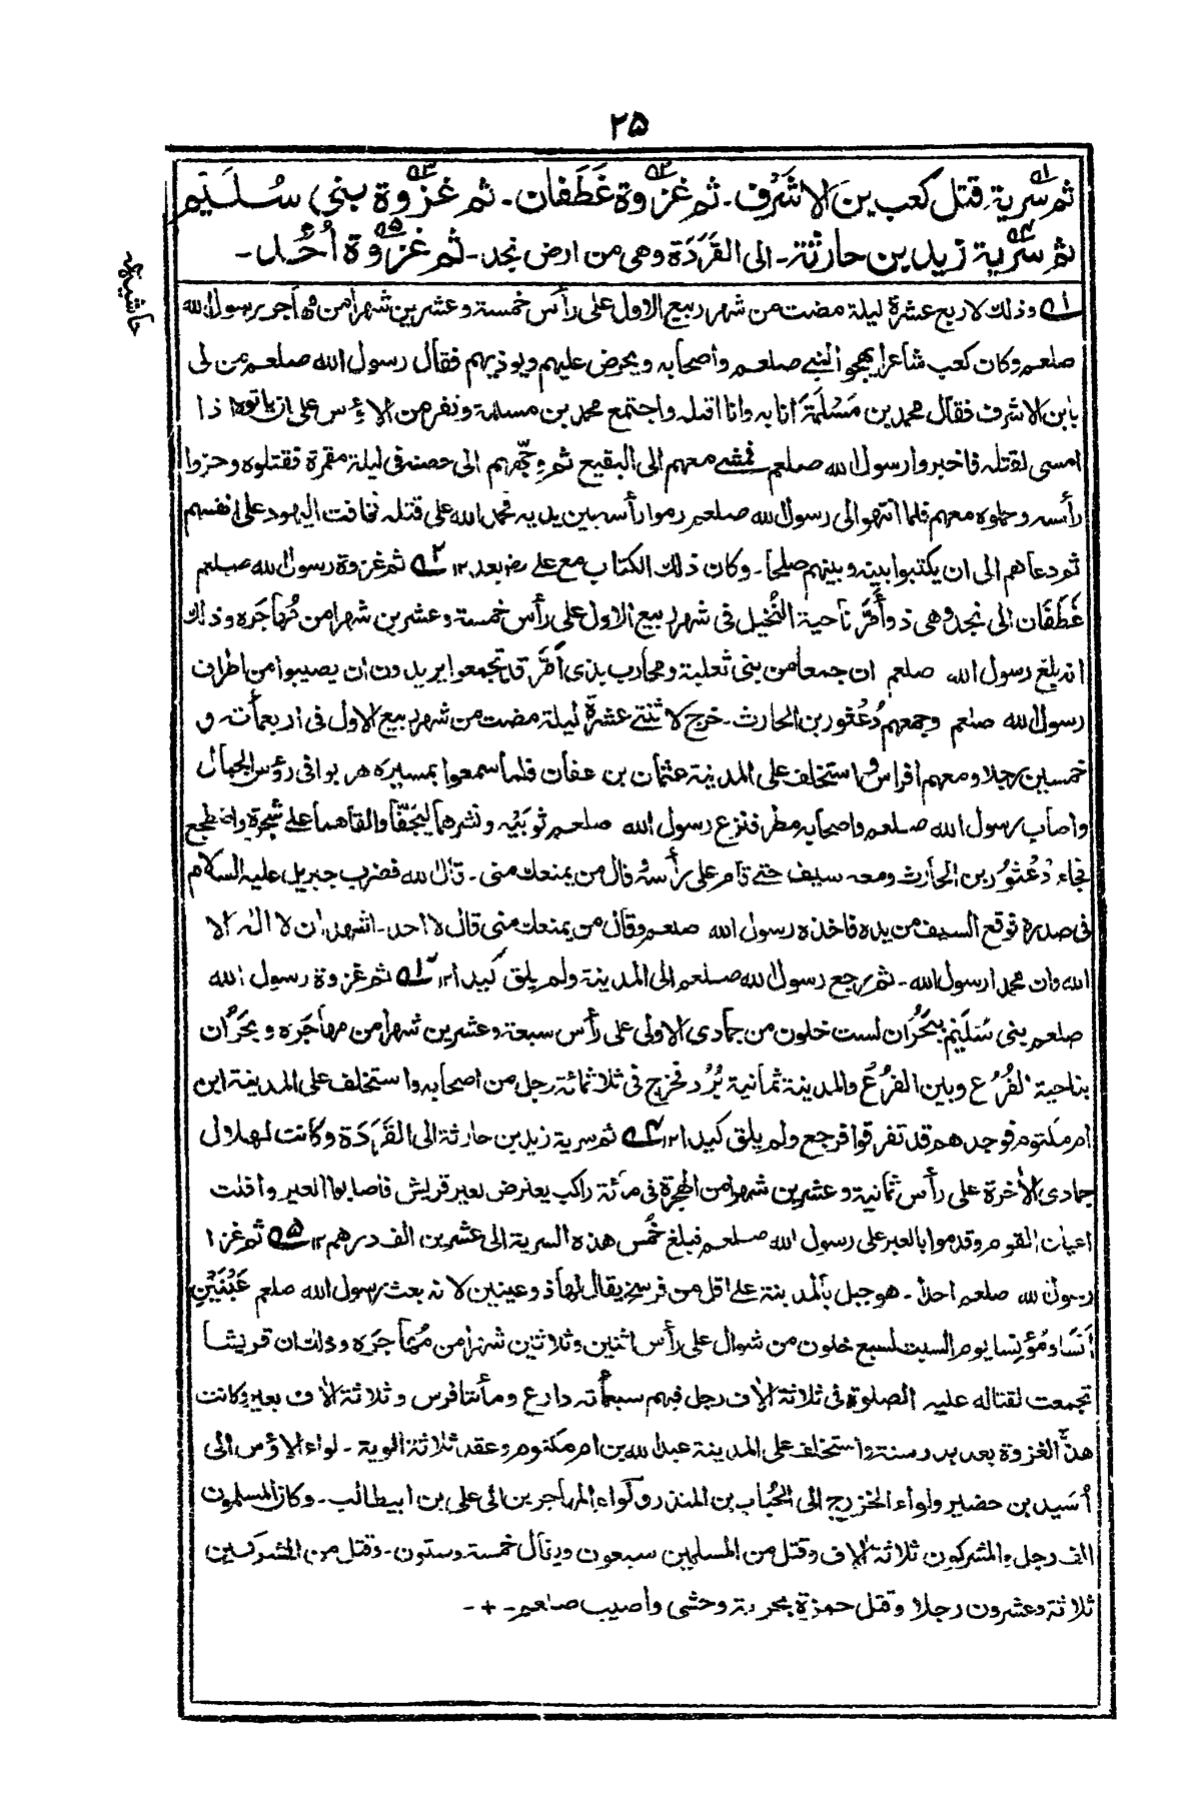 ٢٥
ثم سرية قتل كعب بن الاشرف۔ ثم غزوة غَطَفان۔ ثم غزوة بنی سُلَيم
ثم سرية زيد بن حارثة۔ الی القَرَدَة وهی من ارض نجد۔ ثم غزوة اُحُد۔
حاشیہ
١ وذلك لاربع عشرة ليلة مضت من شهر ربيع الاول علی رأس خمسة وعشرين شهرا من مهاجر رسول الله
صلعم وكان كعب شاعرا يهجو النبی صلعم واصحابه ويحرض عليهم ويوذيهم فقال رسول الله صلعم من لی
بابن الاشرف فقال محمد بن مَسْلَمَة انا به وانا اقتله واجتمع محمد بن مسلمة ونفر من الاؤس علی ان ياتوه اذا
امسی لقتله فاخبروا رسول الله صلعم فمشی معهم الی البقيع ثم وجّههم الی حصنه فی ليلة مقمرة فقتلوه وحزوا
رأسه وحملوه معهم فلما انتهوا الی رسول الله صلعم رموا رأسه بين يديه فحمد الله علی قتله فخافت اليهود علی انفسهم
ثم دعاهم الی ان يكتبوا بينه وبينهم صلحا۔ وكان ذلك الكتاب مع علی رض بعد ١٢ ٢ ثم غزوة رسول الله صلعم
غَطَفَان الی نجد وهی ذو أَمَرَّ ناحية النُّخيل فی شهر ربيع الاول علی رأس خمسة وعشرين شهرا من مُهَاجَره وذلك
انه بلغ رسول الله صلعم ان جمعا من بنی ثعلبة ومحارب بذی اَمَرَّ قد تجمعوا يريدون ان يصيبوا من اطراف
رسول الله صلعم وجمعهم دُعْثور بن الحارث۔ خرج لاثنتی عشرة ليلة مضت من شهر ربيع الاول فی اربعمأته و
خمسين رجلا ومعهم افراس واستخلف علی المدينة عثمان بن عفان فلما سمعوا بمسيره هربوا فی رؤس الجبال
واصاب رسول الله صلعم واصحابه مطر فنزع رسول الله صلعم ثوبَيْه ونشرهما ليَجَفّا والقاهما علی شجرة واضطجع
فجاء دُعْثور بن الحارث ومعه سيف حتی قام علی رأسه قال من يمنعك منی۔ قال الله فضرب جبريل عليه السلام
فی صدره فوقع السيف من يده فاخذه رسول الله صلعم وقال من يمنعك منی قال لا احد۔ اشهد ان لا اله الا
الله وان محمدا رسول الله۔ ثم رجع رسول الله صلعم الی المدينة ولم يلق كيدا ١٢ ٣ ثم غزوة رسول الله
صلعم بنی سُلَيْم ببَحَرَان لست خلون من جمادی الاولی علی رأس سبعة وعشرين شهرا من مهاجَره وبحَرَان
بناحية الفُرُع وبين الفُرُع والمدينة ثمانية بُرُد فخرج فی ثلاثمائة رجل من اصحابه واستخلف علی المدينة ابن
ام مكتوم فوجدهم قد تفرقوا فرجع ولم يلق كيدا ١٢ ٤ ثم سرية زيد بن حارثة الی القَرَدَة وكانت لهلال
جمادی الاٰخرة علی رأس ثمانية وعشرين شهرا من الهجرة فی مأئة راكب يعترض لعير قريش فاصابوا العير وافلت
اعيان القوم وقدموا بالعير علی رسول الله صلعم فبلغ خُمُس هذه السرية الی عشرين الف درهم ١٢ ۵ ثم غزا
رسول الله صلعم احدا۔ هو جبل بالمدينة علی اقل من فرسخ يقال لها ذو عينين لانه بعث رسول الله صلعم عَيْنَيْنِ
اَنَسًا ومُؤنِسا يوم السبت لسبع خلون من شوال علی رأس اثنين وثلاثين شهرا من مُهاجَره وذلك ان قريشا
تجمعت لقتاله عليه الصلوة فی ثلاثة الاف رجل فيهم سبعمأته دارع ومأتتا فرس وثلاثة الاف بعير وكانت
هذه الغزوة بعد بدر سنة واستخلف علی المدينة عبد الله بن ام مكتوم وعقد ثلاثة الوية۔ لواء الاؤس الی
اُسَيد بن حضير ولواء الخزرج الی الحُباب بن المنذر ولواء المهاجرين الی علی بن ابيطالب۔ وكان المسلمون
الف رجل والمشركون ثلاثة الاف وقتل من المسلمين سبعون ويقال خمسة وستون۔ وقتل من المشركين
ثلاثة وعشرون رجلا وقتل حمزة بحربة وحشی واصيب صلعم۔+۔